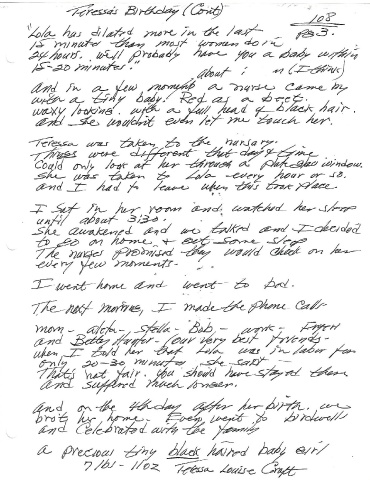 Teressa's Birthday (Cont)
108
Pg 3.
"Lola has dilated more in the last
15 minutes than most women do in
24 hours. We'll probably have you a baby within
15-20 minutes."
about (I think)
And in a few moments a nurse came by
with a tiny baby! Red as a beet.
waxy looking. with a full head of black hair.
and she wouldn't even let me touch her.
Teressa was taken to the nursery.
Things were different that day & time
Could only look at her through a plate glass window.
She was taken to Lola every hour or so.
and I had to leave when this took place.
I sat in her room and watched her sleep
until about 3:30.
She awakened and we talked and I decided
to go on home & get some sleep
The nurses promised they would check on her
every few moments.
I went home and went to bed.
The next morning, I made the phone calls
mom - - Stella - Bob, - work -
and Betty Hunter - Our very best friends -
when I told her that Lola was in labor for
only 20-30 minutes she said -
That's not fair. You should have stayed there
and suffered much longer.
And on the 4th day after her birth, we
brot her home - Even went to Birdwell
and celebrated with the family
a precious tiny black haired baby girl
7 lbs - 11 oz Teressa Louise Croft